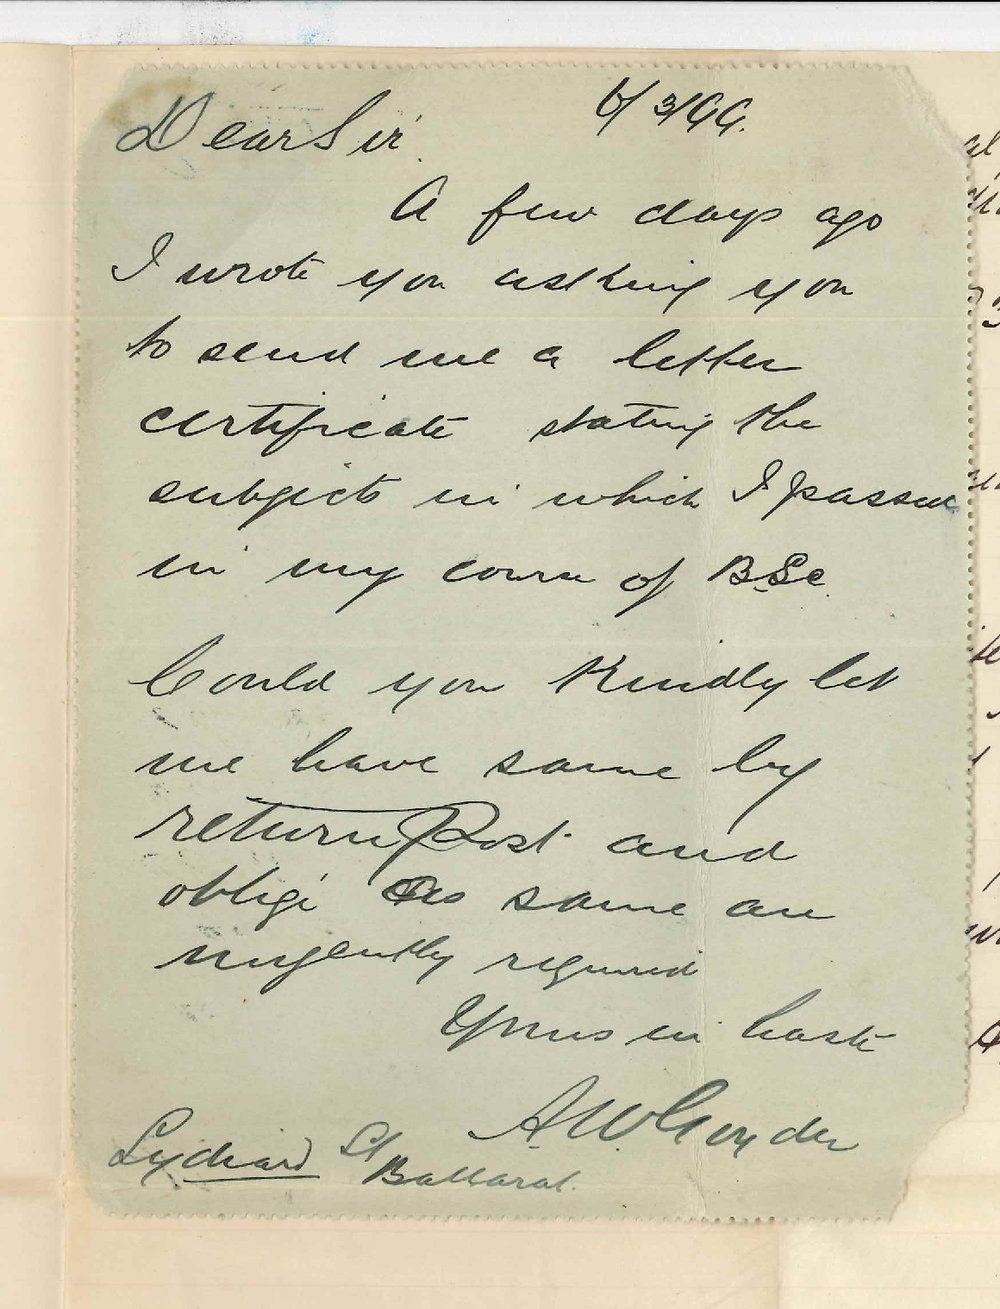 6/3/99.
Dear Sir
A few days ago
I wrote you asking you
to send me a letter
certificate stating the
subjects in which I passed
in my course of B.Sc.
Could you kindly let
me have same by
return Post and
oblige as same are
urgently required
Yours in haste
A. W. Goyder
Lydiard St
Ballarat.